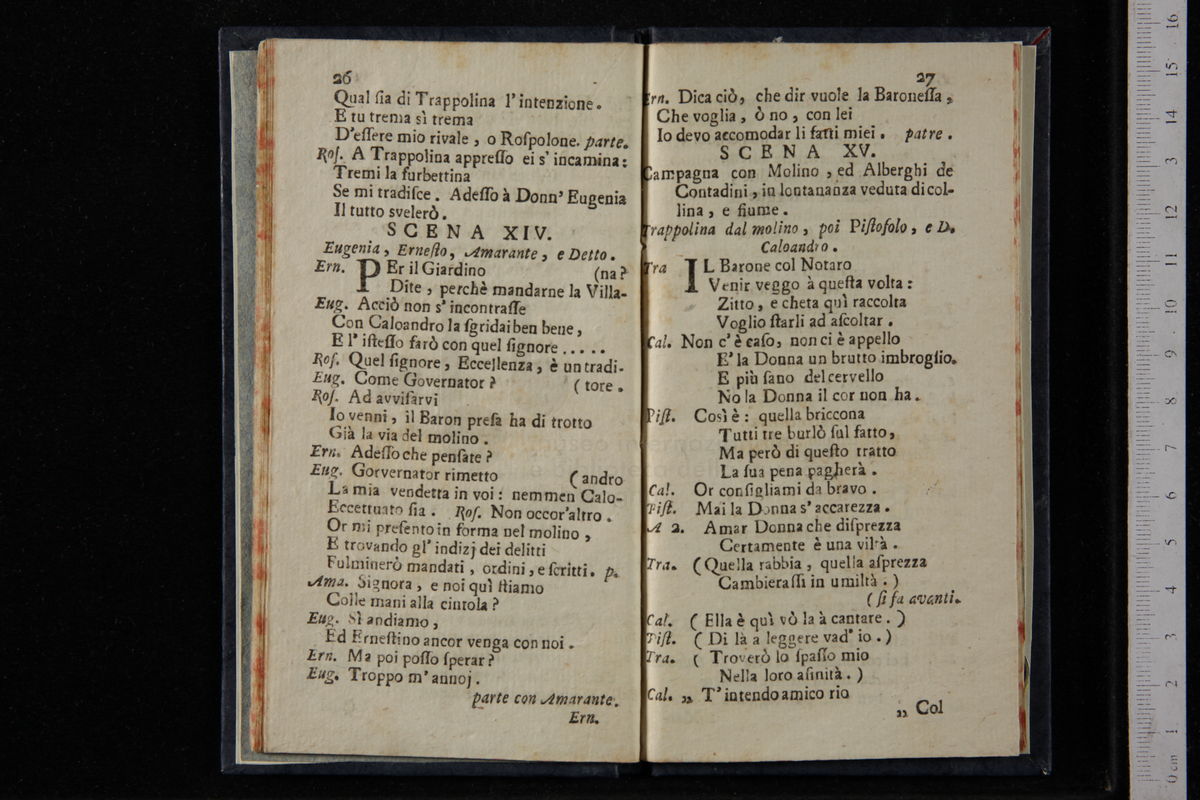 26
Qual ſia di Trappolina l'intenzione.
E tu trema sì trema
D'eſſere mio rivale, o Roſpolone. parte.
Roſ. A Trappolina appreſſo ei s'incamina:
Tremi la furbettina
Se mi tradiſce. Adeſſo à Donn' Eugenia
Il tutto svelerò.
SCENA XIV.
Eugenia, Erneſto, Amarante, e Detto.
Ern. PEr il Giardino (na?
Dite, perchè mandarne la Villa-
Eug. Acciò non s'incontraſſe
Con Caloandro la ſgridai ben bene,
E l'iſteſſo farò con quel ſignore .....
Roſ. Quel ſignore, Eccellenza, è un tradi-
Eug. Come Governator? (tore.
Roſ. Ad avviſarvi
Io venni, il Baron preſa ha di trotto
Già la via del molino.
Ern. Adeſſo che penſate?
Eug. Gorvernator rimetto (andro
La mia vendetta in voi: nemmen Calo-
Eccettuato ſia. Roſ. Non occor'altro.
Or mi preſento in forma nel molino,
E trovando gl'indizj dei delitti
Fulminerò mandati, ordini, e ſcritti. p.
Ama. Signora, e noi quì ſtiamo
Colle mani alla cintola?
Eug. Sì andiamo,
Ed Erneſtino ancor venga con noi.
Ern. Ma poi poſſo ſperar?
Eug. Troppo m'annoj.
parte con Amarante.
Ern.
27
Ern. Dica ciò, che dir vuole la Baroneſſa,
Che voglia, ò no, con lei
Io devo accomodar li fatti miei. patre.
SCENA XV.
Campagna con Molino, ed Alberghi de
Contadini, in lontananza veduta di col-
lina, e fiume.
Trappolina dal molino, poi Piſtofolo, e D.
Caloandro.
Tra IL Barone col Notaro
Venir veggo à queſta volta:
Zitto, e cheta quì raccolta
Voglio ſtarli ad aſcoltar.
Cal. Non c'è caſo, non ci è appello
E' la Donna un brutto imbroglio.
E più ſano del cervello
No la Donna il cor non ha.
Piſt. Così è: quella briccona
Tutti tre burlò ſul fatto,
Ma però di queſto tratto
La ſua pena pagherà.
Cal. Or conſigliami da bravo.
Piſt. Mai la Donna s'accarezza.
A 2. Amar Donna che diſprezza
Certamente è una viltà.
Tra. (Quella rabbia, quella aſprezza
Cambieraſſi in umiltà.)
(ſi fa avanti.
Cal. (Ella è quì vò la à cantare.)
Piſt. (Di là a leggere vad' io.)
Tra. (Troverò lo ſpaſſo mio
Nella loro aſinità.)
Cal. „ T'intendo amico rio
„ Col